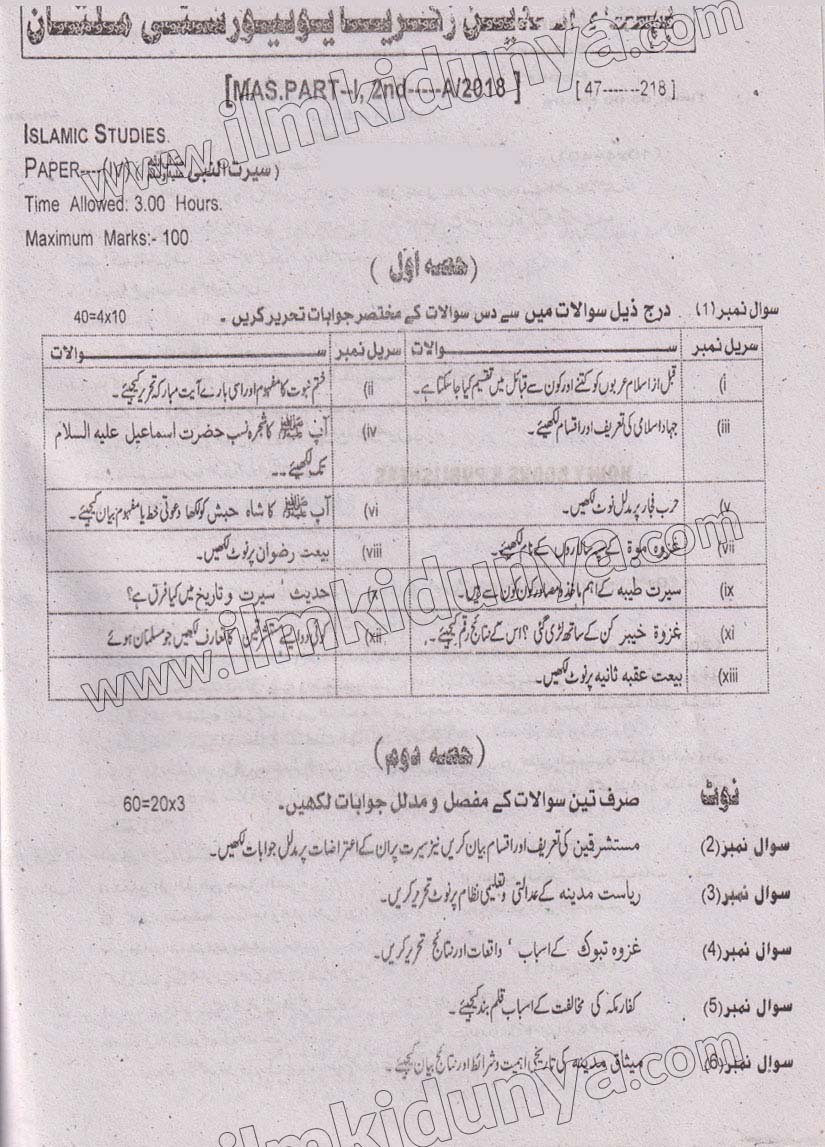 بہاءالدین زکریا یونیورسٹی ملتان
[MAS.PART--I, 2nd-----A/2018 ] [ 47-------218 ]
ISLAMIC STUDIES.
PAPER----(IV) (سیرت النبی ﷺ)
Time Allowed: 3.00 Hours.
Maximum Marks:- 100
(حصہ اول)
سوال نمبر(1) درج ذیل سوالات میں سے دس سوالات کے مختصر جوابات تحریر کریں۔ 40=4x10
سریل نمبر ســـــــوالات سریل نمبر ســـــــوالات
(i قبل از اسلام عربوں کو کتنے اور کون سے قبائل میں تقسیم کیا جا سکتا ہے۔ (ii ختم نبوت کا مفہوم اور اسی بارے آیت مبارکہ تحریر کیجیئے۔
(iii جہاد اسلامی کی تعریف اور اقسام لکھیئے۔ (iv آپ ﷺ کا شجرہ نسب حضرت اسماعیل علیہ السلام
تک لکھیئے۔۔
(v حرب فجار پر مدلل نوٹ لکھیں۔ (vi آپ ﷺ کا شاہ حبش کو لکھا دعوتی خط یا مفہوم بیان کیجیئے۔
(vii غزوہ موتہ کے سپہ سالاروں کے نام لکھیئے۔ (viii بیعت رضوان پر نوٹ لکھیں۔
(ix سیرت طیبہ کے اہم ماخذ و مصادر کون کون سے ہیں۔ (x حدیث ' سیرت و تاریخ میں کیا فرق ہے؟
(xi غزوۃ خیبر کن کے ساتھ لڑی گئی ؟ اس کے نتائج رقم کیجیئے۔ (xii کوئی دو ایسے مستشرقین کا تعارف لکھیں جو مسلمان ہوئے
(xiii بیعت عقبہ ثانیہ پر نوٹ لکھیں۔
(حصہ دوم)
نوٹ صرف تین سوالات کے مفصل و مدلل جوابات لکھیں۔ 60=20x3
سوال نمبر(2) مستشرقین کی تعریف اور اقسام بیان کریں نیز سیرت پر ان کے اعتراضات پر مدلل جوابات لکھیں۔
سوال نمبر(3) ریاست مدینہ کے عدالتی و تعلیمی نظام پر نوٹ تحریر کریں۔
سوال نمبر(4) غزوہ تبوک کے اسباب ' واقعات اور نتائج تحریر کریں۔
سوال نمبر(5) کفار مکہ کی مخالفت کے اسباب قلم بند کیجیئے۔
سوال نمبر(6) میثاق مدینہ کی تاریخی اہمیت و شرائط اور نتائج بیان کیجیئے۔
www.ilmkidunya.com
www.ilmkidunya.com
www.ilmkidunya.com
www.ilmkidunya.com